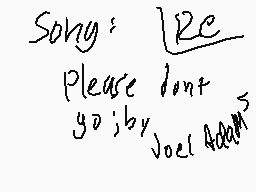 Song: Re
Please dont
go ; by
Joel Adams